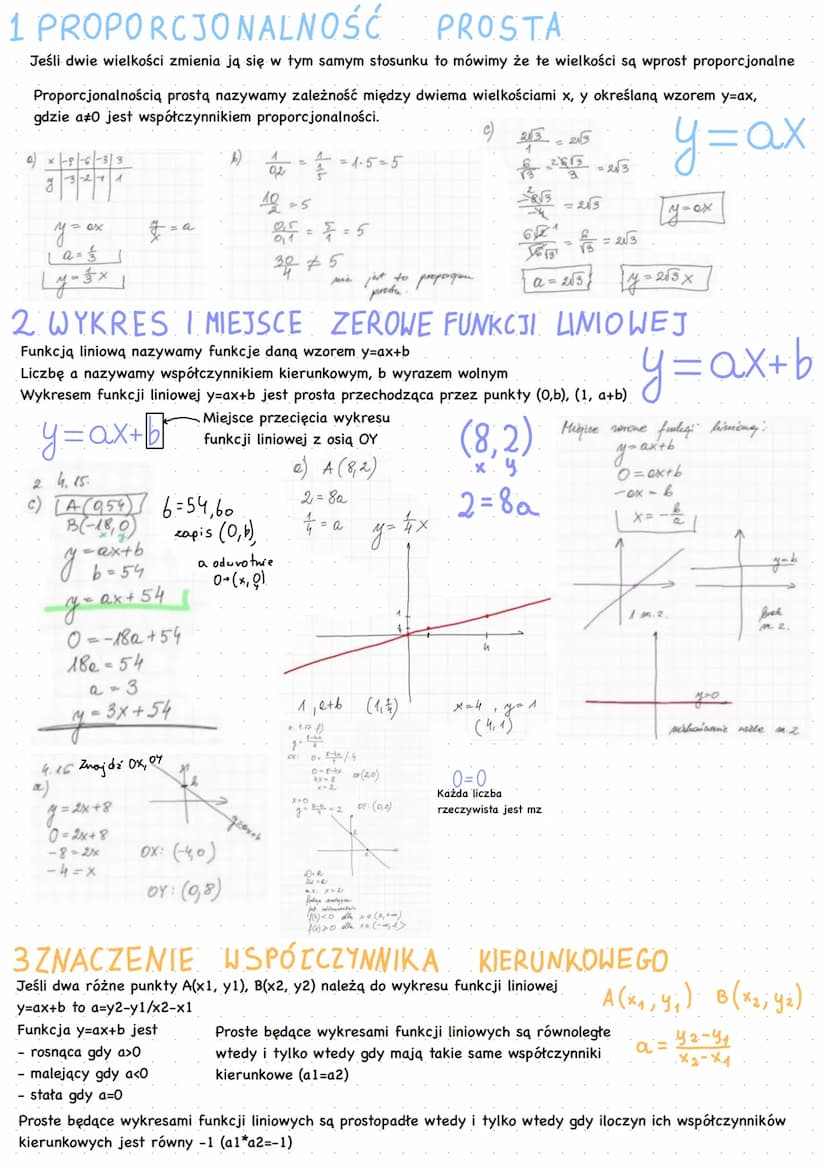 1 PROPORCJONALNOŚĆ PROSTA
Jeśli dwie wielkości zmienia ją się w tym samym stosunku to mówimy że te wielkości są wprost proporcjonalne
Proporcjonalnością prostą nazywamy zależność między dwiema wielkościami x, y określaną wzorem y=ax,
gdzie a≠0 jest współczynnikiem proporcjonalności.
y=ax
a) x |-9|-6|-3|3
y |-3|-2|-1|1
y = ax y/x = a
a = 1/3
y = 1/3 x
b) 1/0,2 = 1/(1/5) = 1·5=5
10/2 = 5
0,5/0,1 = 5/1 = 5
30/4 ≠ 5
nie jest to proporcjon
prosta.
c) 2√3/1 = 2√3
6/√3 = 2 6√3/3 = 2√3
-8√3/-4 = 2√3
= 6/√3 = 2√3
a = 2√3
y = 2√3 x
y=ax
2. WYKRES I MIEJSCE ZEROWE FUNKCJI LINIOWEJ
Funkcją liniową nazywamy funkcje daną wzorem y=ax+b
Liczbę a nazywamy współczynnikiem kierunkowym, b wyrazem wolnym
Wykresem funkcji liniowej y=ax+b jest prosta przechodząca przez punkty (0,b), (1, a+b)
y=ax+b
y=ax+b
Miejsce przecięcia wykresu
funkcji liniowej z osią OY
2. 4.15.
c) A(0,54)
B(-18,0)
x y
y=ax+b
b=54
y=ax+54
0=-18a+54
18a=54
a=3
y=3x+54
b=54, bo
zapis (0,b)
a odwrotnie
0→(x,0)
e) A(8,2)
2=8a
1/4 = a y= 1/4 x
1
4
1, a+b (1, 1/4)
x=4, y=1
(4,1)
(8,2)
x y
2=8a
Miejsce zerowe funkcji liniowej:
y=ax+b
0=ax+b
-ax=b
x=-b/a
1 m.z.
y=b
brak
m.z.
y=0
nieskończenie wiele m.z
4.16 Znajdź OX, OY
a)
y=2x+8
0=2x+8
-8=2x
-4=x
OX: (-4,0)
OY: (0,8)
4x=8
x=2
OX (2,0)
x=0
OY: (0,2)
0=0
Każda liczba
rzeczywista jest mz
3 ZNACZENIE WSPÓŁCZYNNIKA KIERUNKOWEGO
Jeśli dwa różne punkty A(x1, y1), B(x2, y2) należą do wykresu funkcji liniowej
y=ax+b to a=y2-y1/x2-x1
A(x₁, y₁) B(x₂, y₂)
a = y₂-y₁/x₂-x₁
Funkcja y=ax+b jest
- rosnąca gdy a>0
- malejący gdy a<0
- stała gdy a=0
Proste będące wykresami funkcji liniowych są równoległe
wtedy i tylko wtedy gdy mają takie same współczynniki
kierunkowe (a1=a2)
Proste będące wykresami funkcji liniowych są prostopadłe wtedy i tylko wtedy gdy iloczyn ich współczynników
kierunkowych jest równy -1 (a1*a2=-1)